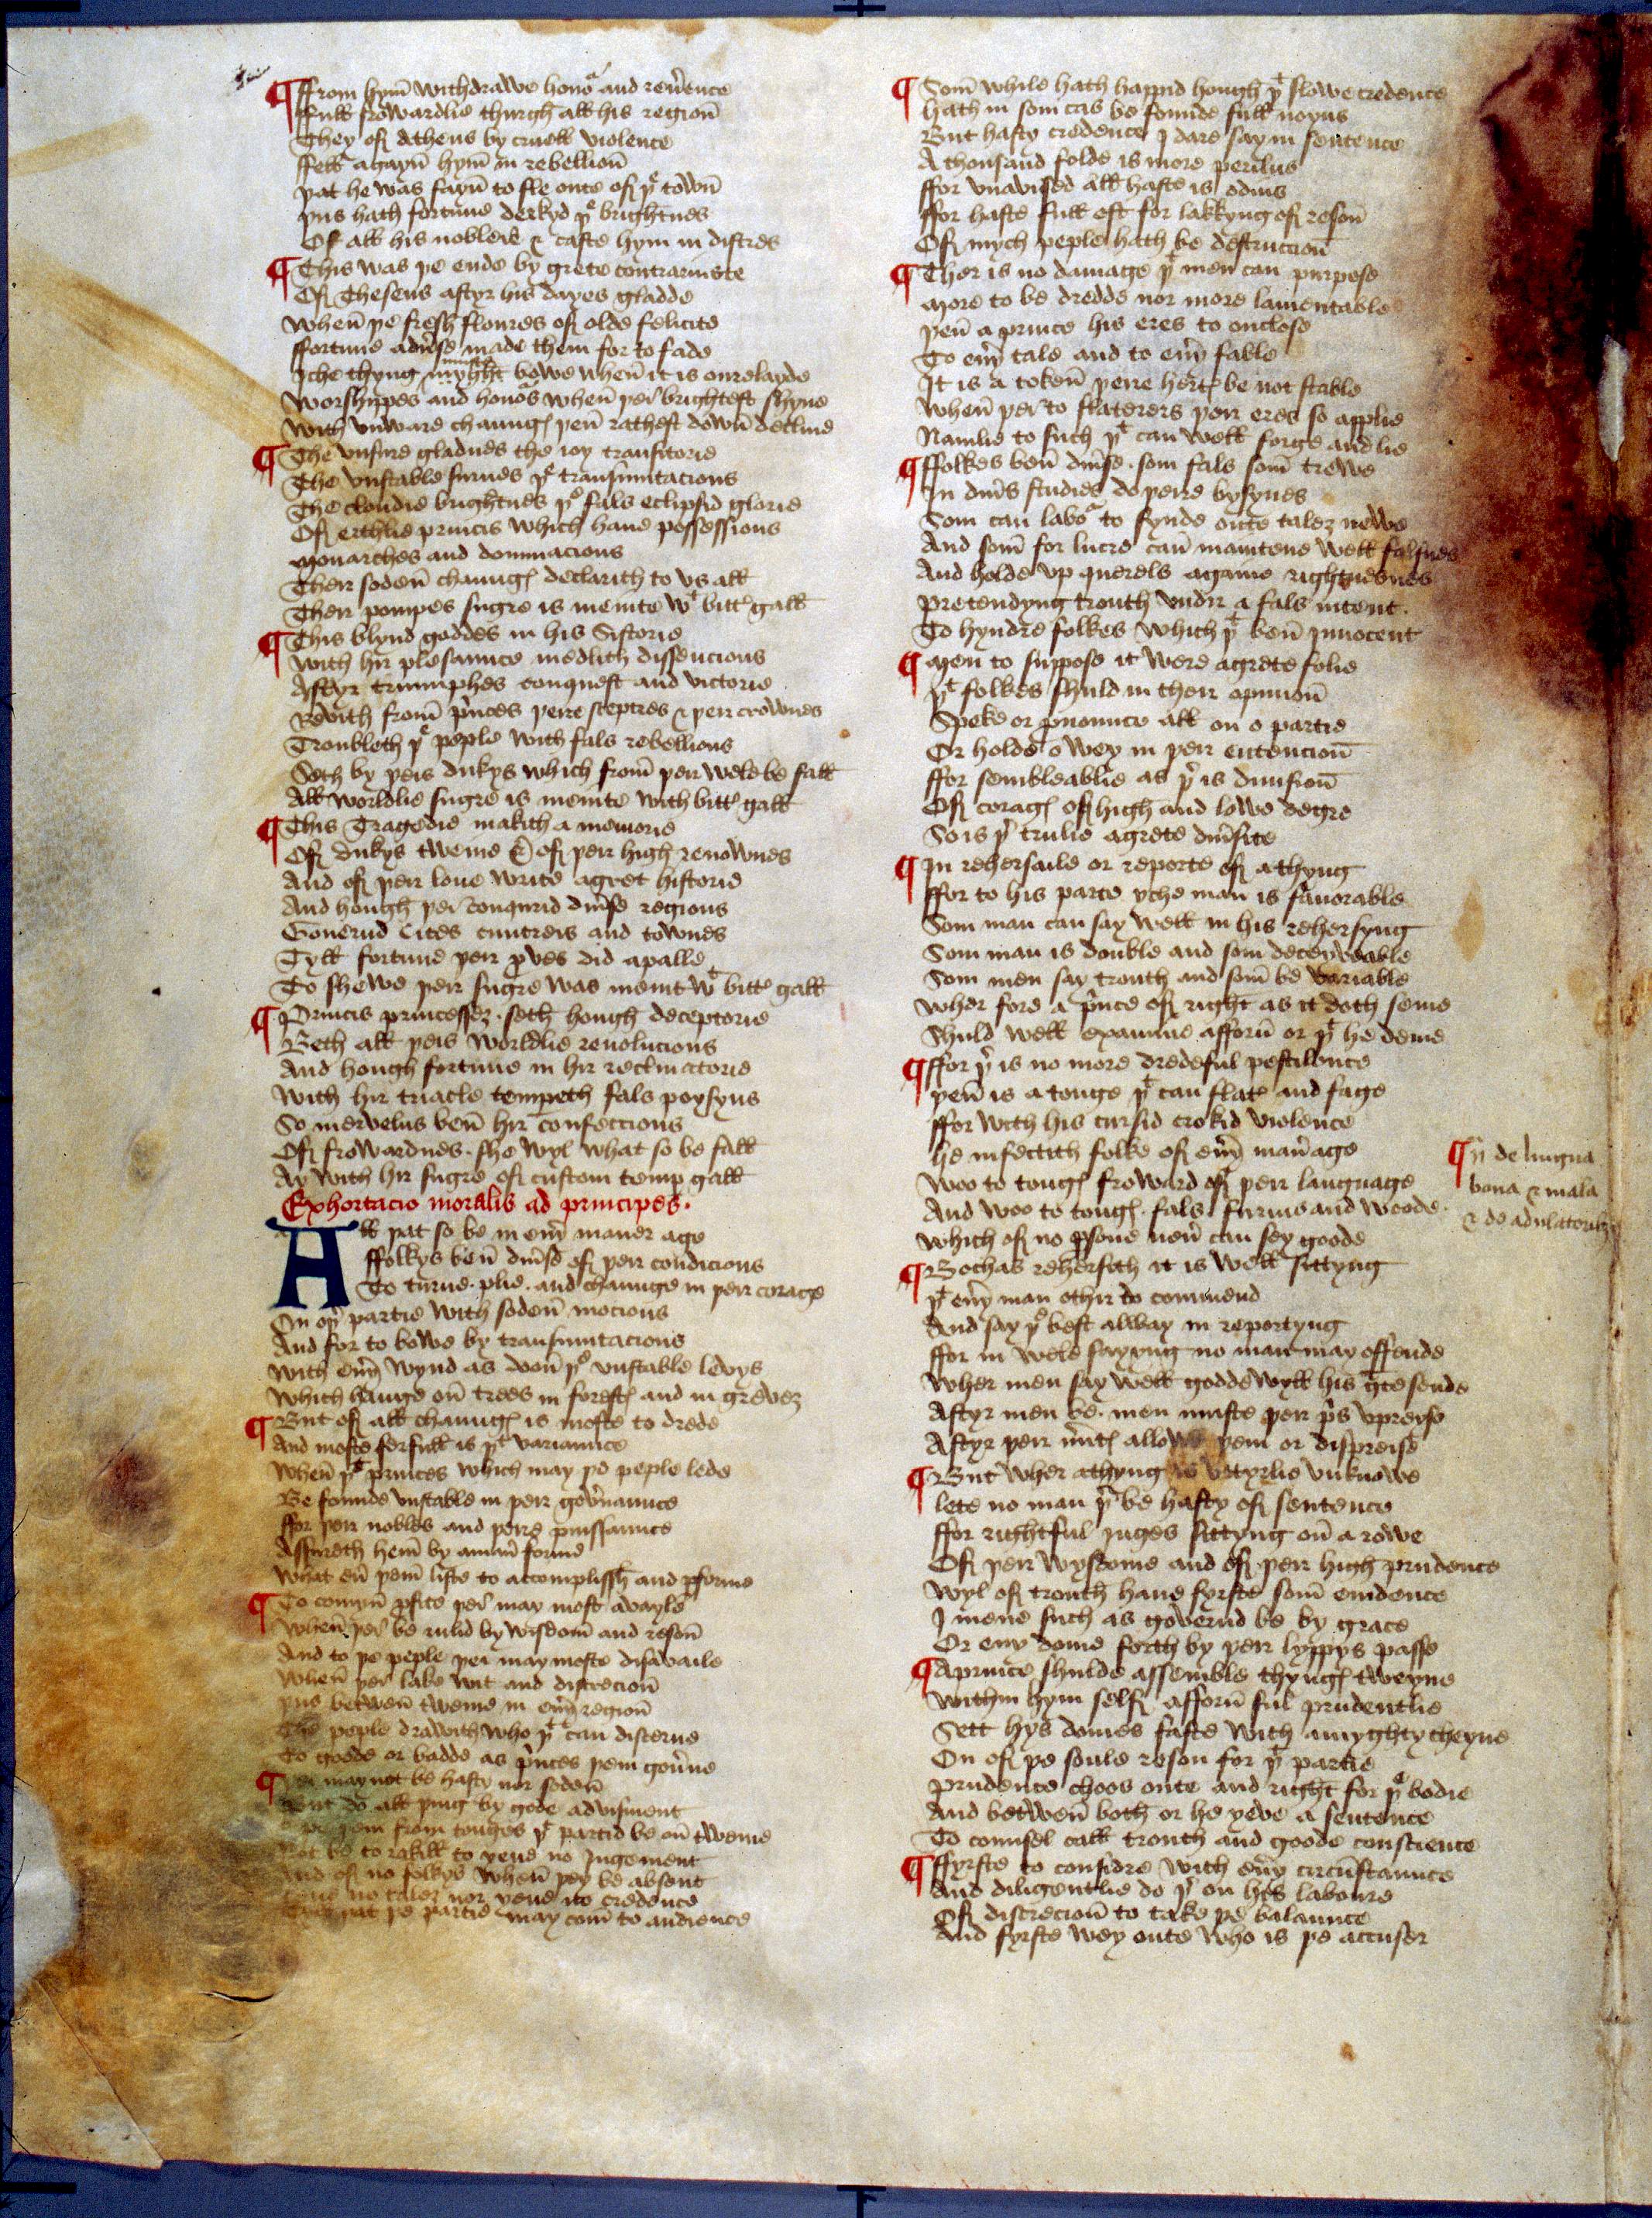 ¶ ffrom hym̄ withdrawe honoᵃ and reu̾ence
ffull frowardlie thurgh all his regioun̄
They of Athens by cruell violence
ffell agayn̄ hym̄ in rebellioun̄
þat he was fayn̄ to fle oute of þᵉ town̄
þus hath fortune derkyd þᵉ brightnes
Of all his noblesse & caste hym in distres
¶ This was þe ende by grete contrariuste
Of Theseus aftyr his dayes gladde
When̄ þe fresh floures of olde felicite
ffortune adu̾se made them for to fade
Iche thyng myght bowe when̄ it is ourelayde
Worshipes and honoᵃs when̄ þei brightest shyne
With vnware chaunges þen̄ rathest down̄ decline
¶ The vnsure gladnes the ioy transitorie
The vnstable surnes þᵉ transmutacions
The cloudie brightnes þᵉ fals eclipsid glorie
Of erthlie princis which haue possessions
Monarches and dominacions
Their soden̄ chaunges declarith to vs all
Their pompes sugre is meinte wᵗ bitt̾ gall
¶ This blynd goddes in his Sistorie
With hir plesaunce medlith dissencions
Aftyr triumphes conquest and victorie
Revith from̄ p̾nces þeire sceptres & þeir crownes
Troubleth þᵉ peple with fals rebellions
Seth by þeis dukys which from̄ þeir wele be fall
All worldlie sugre is meinte with bitt̾ gall
¶ This Tragedie makith a memorie
Of dukys tweine & of þeir high renownes
And of þeir loue write agret historie
And hough þei conqurid diu̾se regions
Gouernd Cites cuntreis and townes
Tyll fortune þeir p̱wes did apalle
To shewe þeir sugre was meint wᵗ bitt̾ gall
¶ Princis princessez · seth hough deceptorie
Beth all þeis worldlie reuolucions
And hough fortune in hir reclinatorie
With hir triacle tempeth fals poysyns
So mervelus ben̄ hir confeccions
Of frowardnes · she wyl what so be fall
Ay with hir sugre of custom temp gall
Exhortacio moralis ad principes ·
All þat so be in eu̾y maner age
ffolkys ben̄ diu̾se of þeir condicions
To turne · plie · and chaunge in þeir corage
On oþ̾ partie with soden̄ mocions
And for to bowe by transmutacions
With eu̾y wynd as don̄ þᵉ vnstable levys
Which hange on̄ trees in forestes and in grevez
¶ But of all chaunges is moste to drede
And moste ferfull is þᵗ variaunce
When̄ þᵗ princes which may þe peple lede
Be founde vnstable in þeir gou̾naunce
ffor þeir nobles and þeire puissaunce
Assureth hem̄ by aman̄ forme
What eu̾ þem̄ liste to accomplissh and p̱forme
¶ To comyn̄ p̱fite þei may most avayle
When̄ þei be rulid by wisdom̄ and reson̄
And to þe peple þei may moste disavaile
When̄ þei lake wit and discrecion̄
þus betwen̄ tweine in eu̾y region̄
The peple drawith who þᵗ can discerne
To goode or badde as p̾nces þem gou̾ne
¶ þei may not be hasty nor soden̄
But do all þing by gode advisment
þem from touches þᵗ partid be on̄ tweine
Not be to rakill to yeue no jugement
And of no folkys when̄ þey be absent
no talez nor yeue no credence
þat þe partie may com̄ to audience
¶ Som̄ while hath happid hough þᵗ slowe credence
hath in som cas be founde full noyus
But hasty credence I dare say in sentence
A thousand folde is more perilus
ffor vnavised all haste is odius
ffor haste full oft for lakkyng of reson̄
Of mych peple hath be destruccion̄
¶ Ther is no damage þᵗ men can purpose
More to be dredde nor more lamentable
þen̄ a prince his eres to onclose
To eu̾y tale and to eu̾y fable
It is a token̄ þeire hertes be not stable
When̄ þei to flaterers þeir eres so applie
Namlie to such þᵗ can well forge and lie
¶ ffolkes ben̄ diu̾se · som fals som̄ trewe
In diu̾s studies do þeire bysynes
Som can laboᵃ to fynde oute talez newe
And som̄ for lucre can̄ mainteine well falsnes
And holde vp querels againe rightuesnes
Pretendyng trouth vndir a fals intent ·
To hyndre folkes which þᵗ ben̄ Innocent
¶ Men to suppose it were agrete folie
þᵗ folkes shuld in their opinion̄
Speke or p̱nounce all on o partie
Or holde o wey in þeir entencion̄
ffor sembleablie as þ̾ is diuision̄
Of corages of high and lowe degre
So is þ̾ trulie agrete diu̾site
¶ In rehersaile or reporte of a thyng
ffor to his parte yche man is fauorable
Som man can say well in his rehersyng
Som man is double and som deceyveable
Som men say trouth and som̄ be variable
Wher fore a p̾nce of right as it doth seme
Shuld well examine afforn̄ or þᵗ he deme
¶ ffor þ̾ is no more dredeful pestilence
þen̄ is a tonge þᵗ can flat̾ and fage
ffor with his cursid crokid violence
he infectith folke of eu̾y man̾ age
Woo to tonges froward of þeir language
And woo to tonges · fals · furius and woode ·
Which of no p̱sone neu̾ can sey goode
¶ Bochas reherseth it is well sittyng
þᵗ eu̾y man othir do commend
And say þᵉ best alway in reportyng
ffor in wele sayyng no man may offende
Wher men say well godde wyll his gᵃce sende
Aftyr men be · men muste þeir p̾s vpreyse
Aftyr þeir m̾ites allowe þem or dispreise
¶ But wher athyng is vttyrlie vnknowe
lete no man þ̾ be hasty of sentence
ffor rightful juges sittyng on̄ a rowe
Of þeir wysdome and of þeir high prudence
Wyl of trouth haue fyrste som̄ euidence
I mene such as gouernd be by grace
Or eny dome forth by þeir lyppys passe
¶ A prince shulde assemble thynges tweyne
Within hym self afforn̄ ful prudentlie
Sett hys domes faste with amyghty cheyne
On of þe soule reson for þᵗ partie
Prudence choos oute and right for þᵉ bodie
And betwen̄ both or he yeve a sentence
To counsel call trouth and goode conscience
¶ ffyrste to considre with eu̾y circūstaunce
And diligentlie do þ̾ on his laboure
Of discrecion̄ to take þe balaunce
And fyrste wey oute who is þe accuser
¶ de lingua
bona & mala
& de adulatorib3